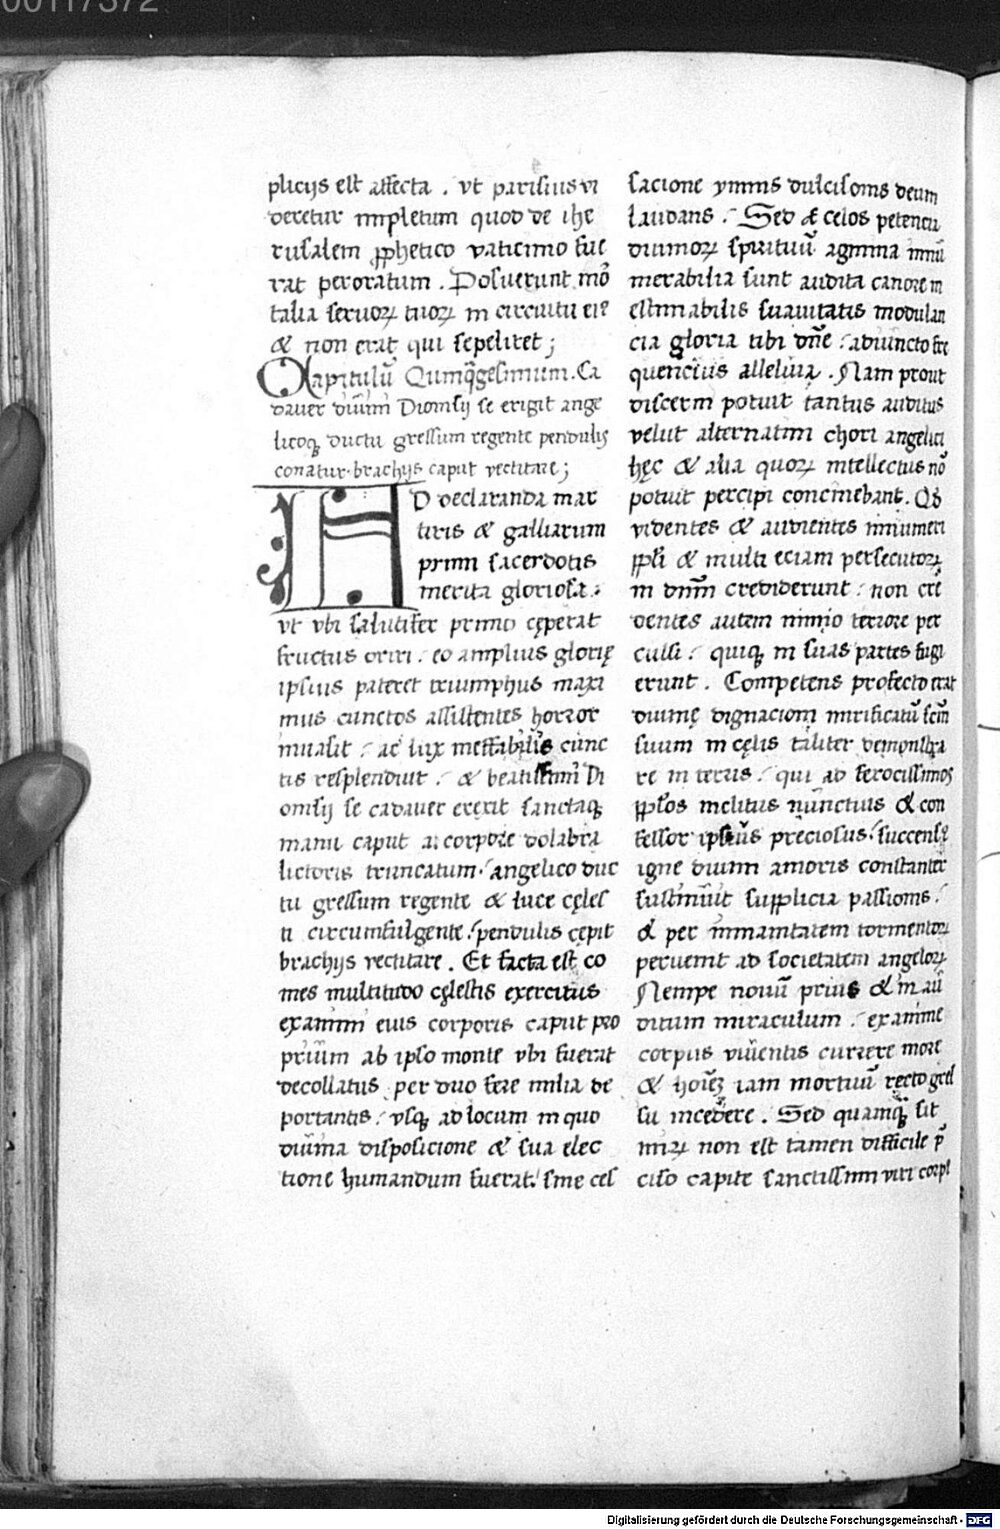 00117372
plicijs est affecta . vt parisius vi
deretur impletum quod de ihe
rusalem ꝓphetico vaticinio fue
rat peroratum . Posuerunt mō
talia seruoꝝ tuoꝝ in circuitu eiꝰ
& non erat qui sepeliret ;
Capitulū Quinq̄gesimum . Ca
dauer diuini Dionisij se erigit ange
licoqꝫ ductu gressum regente pendulis
conatur brachijs caput vectitare ;
AD declaranda mar
tiris & galliarum
primi sacerdotis
merita gloriosa :
vt vbi salutifer primo cęperat
fructus oriri : eo amplius glorię
ipsius pateret triumphus maxi
mus cunctos assistentes horror
inuasit : ac lux ineffabilis cunc
tis resplenduit : & beatissimi Di
onisij se cadauer erexit sanctaqꝫ
manu caput a corpore dolabra
lictoris truncatum : angelico duc
tu gressum regente & luce cęles
ti circumfulgente : pendulis cępit
brachijs vectitare . Et facta est co
mes multitudo cęlestis exercitus
exanimi eius corporis caput pro
prium ab ipso monte vbi fuerat
decollatus per duo fere milia de
portantis : vsqꝫ ad locum in quo
diuina disposicione & sua elec
tione humandum fuerat : sine ces
sacione ymnis dulcisonis deum
laudans : Sed & celos petenciū
diuinoꝝ spirituū agmina innū
merabilia sunt audita canore in
estimabilis suauitatis modulan
cia gloria tibi dn̄e : adiuncto fre
quencius alleluia . Nam prout
discerni potuit tantus auditus
velut alternatim chori angelici
hęc & alia quoꝝ intellectus nō
potuit percipi concinebant . Qđ
videntes & audientes innumeri
ppl̄i & multi eciam persecutoꝝ
in dn̄m crediderunt : non crē
dentes autem nimio terrore per
culsi : quiqꝫ in suas partes fugi
erunt . Competens profecto erat
diuinę dignacioni mirificatū sc̄m
suum in cęlis taliter demonstra
re in terris : qui ad ferocissimos
ppl̄os inclitus nunctius & con
fessor ipsius preciosus : succensꝰ
igne diuini amoris constanter
sustinuit supplicia passionis :
& per inmanitatem tormentoꝝ
peruenit ad societatem angeloꝝ
Nempe nouū prius & in au
ditum miraculum : exanime
corpus viuentis currere more
& hoīēz iam mortuū recto gres
su incedere . Sed quamqꝫ sit
miꝝ non est tamen difficile p̄
ciso capite sanctissimi viri corpꝰ
Digitalisierung gefördert durch die Deutsche Forschungsgemeinschaft - DFG